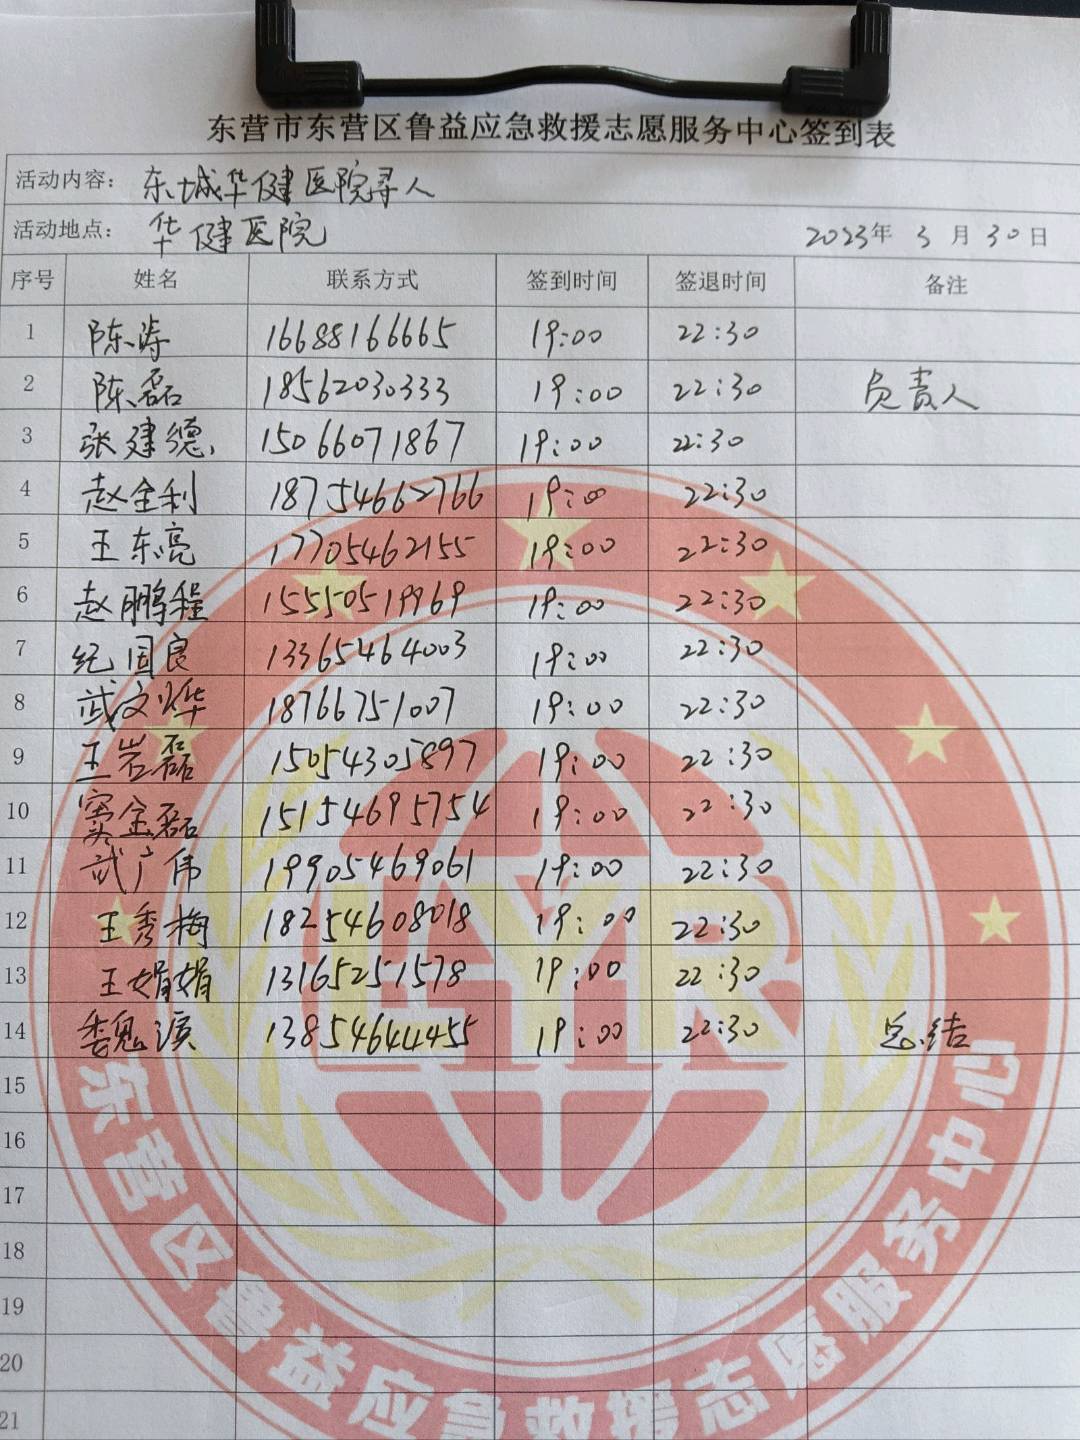 东营市东营区鲁益应急救援志愿服务中心签到表
活动内容： 东城华健医院寻人
活动地点： 华健医院 2023年 3 月 30 日
序号 姓名 联系方式 签到时间 签退时间 备注
1 陈涛 16688166665 19:00 22:30
2 陈磊 18562030333 19:00 22:30 负责人
3 张建德 15066071867 19:00 22:30
4 赵金利 18754662766 19:00 22:30
5 王东亮 17705462155 19:00 22:30
6 赵鹏程 15550519969 19:00 22:30
7 纪国良 13365464003 19:00 22:30
8 武文烨 18766751007 19:00 22:30
9 王岩磊 15054305897 19:00 22:30
10 窦金磊 15154695754 19:00 22:30
11 武广伟 19905469061 19:00 22:30
12 王秀梅 18254608018 19:00 22:30
13 王娟娟 13165251578 19:00 22:30
14 13854644455 19:00 22:30 总结
15
16
17
18
19
20
21
LYR
东营区鲁益应急救援志愿服务中心